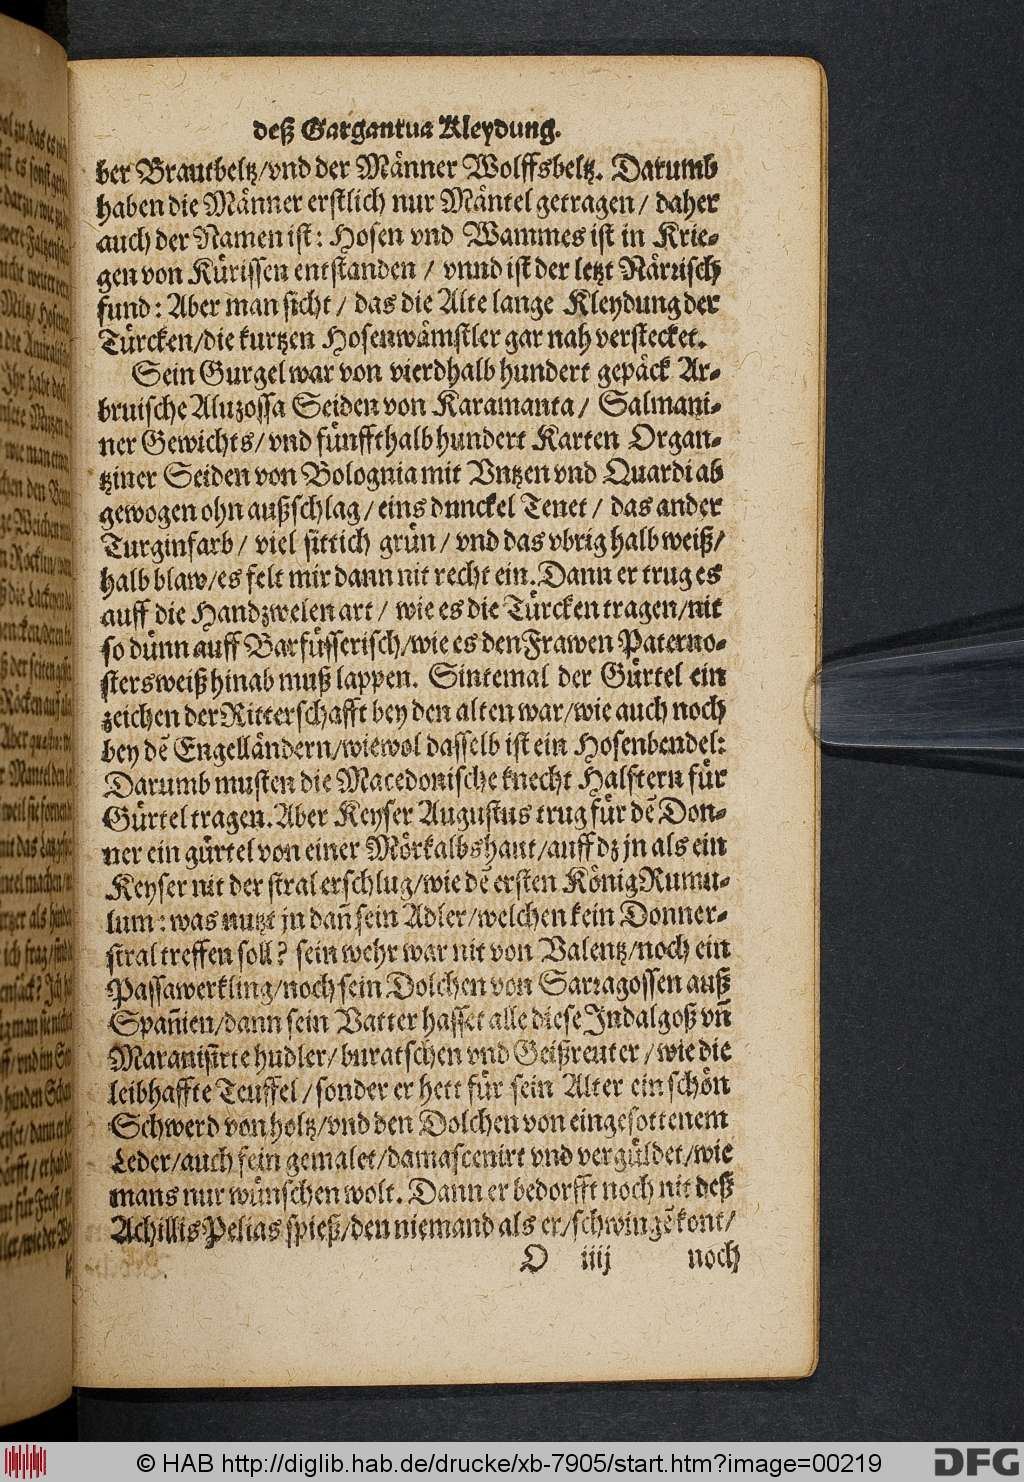 deß Gargantua Kleydung.
ber Brautbeltz/vnd der Männer Wolffsbeltz. Darumb
haben die Männer erstlich nur Mäntel getragen/ daher
auch der Namen ist: Hosen vnd Wammes ist in Krie-
gen von Kürissen entstanden / vnnd ist der letzt Närrisch
fund: Aber man sicht / das die Alte lange Kleydung der
Türcken/die kurtzen Hosenwämstler gar nah verstecket.
Sein Gurgel war von vierdhalb hundert gepäck Ar-
bruische Aluzossa Seiden von Karamanta/ Salmani-
ner Gewichts/ vnd fünffthalb hundert Karten Organ-
tziner Seiden von Bolognia mit Vntzen vnd Quardi ab
gewogen ohn außschlag/ eins dunckel Tenet / das ander
Turginfarb/ viel sittich grün/ vnd das vbrig halb weiß/
halb blaw/es felt mir dann nit recht ein. Dann er trug es
auff die Handzwelen art/ wie es die Türcken tragen/nit
so dünn auff Barfüsserisch/wie es den Frawen Paterno-
stersweiß hinab muß lappen. Sintemal der Gürtel ein
zeichen der Ritterschafft bey den alten war/wie auch noch
bey dẽ Engelländern/wiewol dasselb ist ein Hosenbendel:
Darumb musten die Macedonische knecht Halftern für
Gürtel tragen. Aber Keyser Augustus trug für dẽ Don-
ner ein gürtel von einer Mörkalbshaut/auff dz jn als ein
Keyser nit der stral erschlug/wie dẽ ersten König Rumu-
lum: was nutzt jn dañ sein Adler/welchen kein Donner-
stral treffen soll? sein wehr war nit von Valentz/noch ein
Passawerkling/noch sein Dolchen von Sarragossen auß
Spañien/dann sein Vatter hasset alle diese Indalgoß vñ
Maranisirte hudler/buratschen vnd Geißreuter/wie die
leibhaffte Teuffel/sonder er hett für sein Alter ein schön
Schwerd von holtz/vnd den Dolchen von eingesottenem
Leder/auch fein gemalet/damascenirt vnd vergüldet/wie
mans nur wünschen wolt. Dann er bedorfft noch nit deß
Achillis Pelias spieß/den niemand als er/schwingẽ kont/
O iiij noch
© HAB http://diglib.hab.de/drucke/xb-7905/start.htm?image=00219
DFG